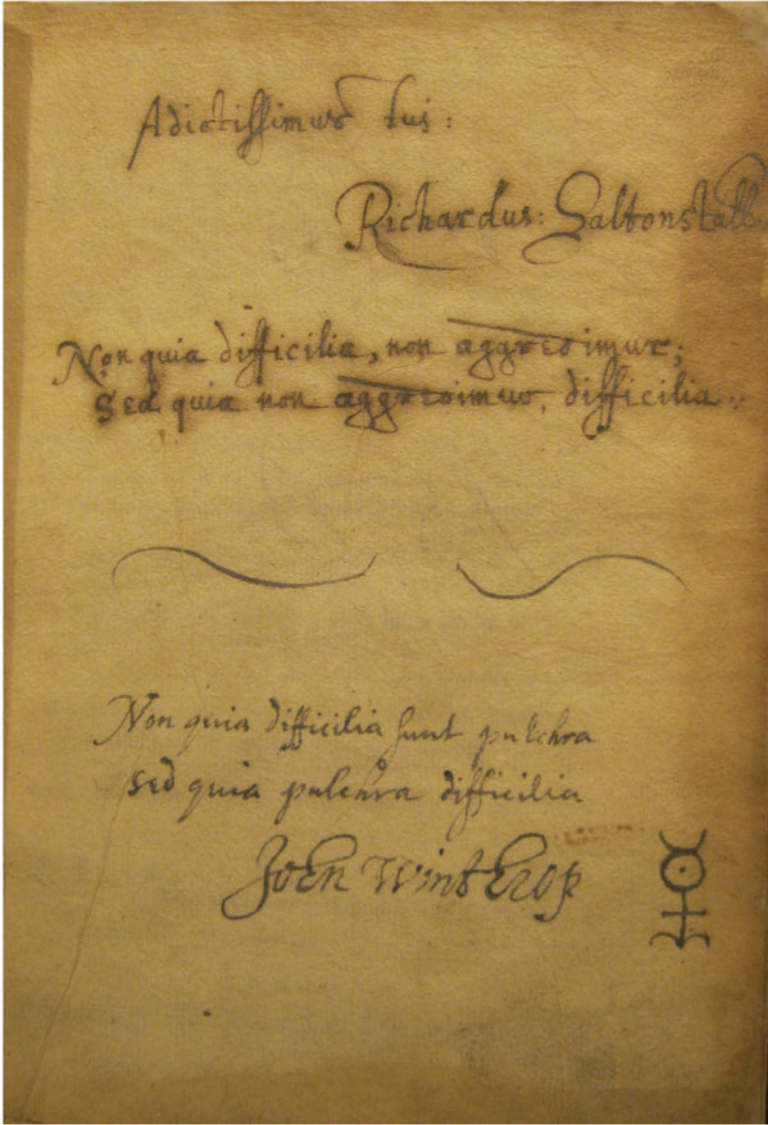 Adictissimus tui:
Richardus: Saltonstall
Non quia difficilia, non aggredimur;
Sed quia non aggredimur, difficilia
Non quia difficilia sunt pulchra
sed quia pulchra difficilia
John Winthrop